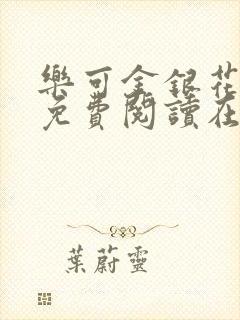 樂可金銀花
免費閱讀在
葉蔚靈